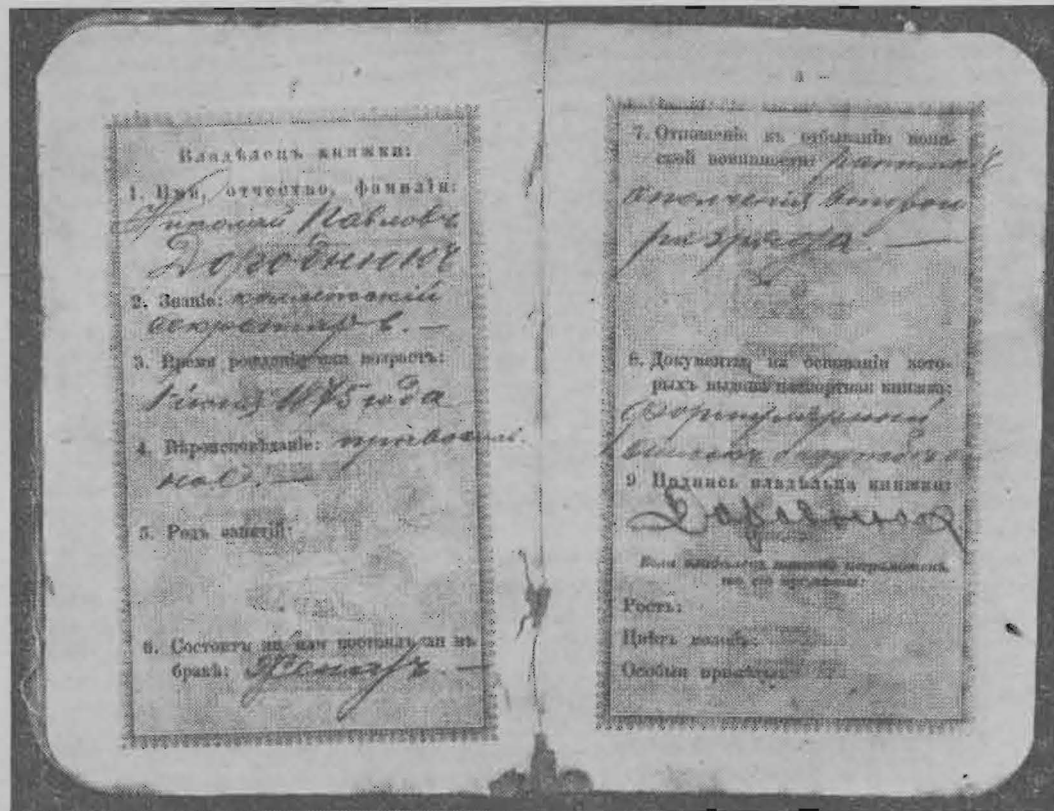 4 –
Владѣлецъ книжки:
1. Имя, отчество, фамилія:
Николай Павловъ
Дородницъ
2. Званіе: коллежскій
секретарь. —
3. Время рожденія или возрастъ:
1875 года
4. Вѣроисповѣданіе: православ-
ное. —
5. Родъ занятій:
6. Состоитъ ли или состоялъ ли въ
бракѣ: Женатъ. —
7. Отношеніе къ отбыванію воин-
ской повинности: ратникъ
ополченія второго
разряда. —
8. Документы, на основаніи кото-
рыхъ выдана паспортная книжка:
Формулярный
списокъ о службѣ
9. Подпись владѣльца книжки:
Если владѣлецъ книжки неграмотенъ,
то его примѣты:
Ростъ:
Цвѣтъ волосъ:
Особыя примѣты: